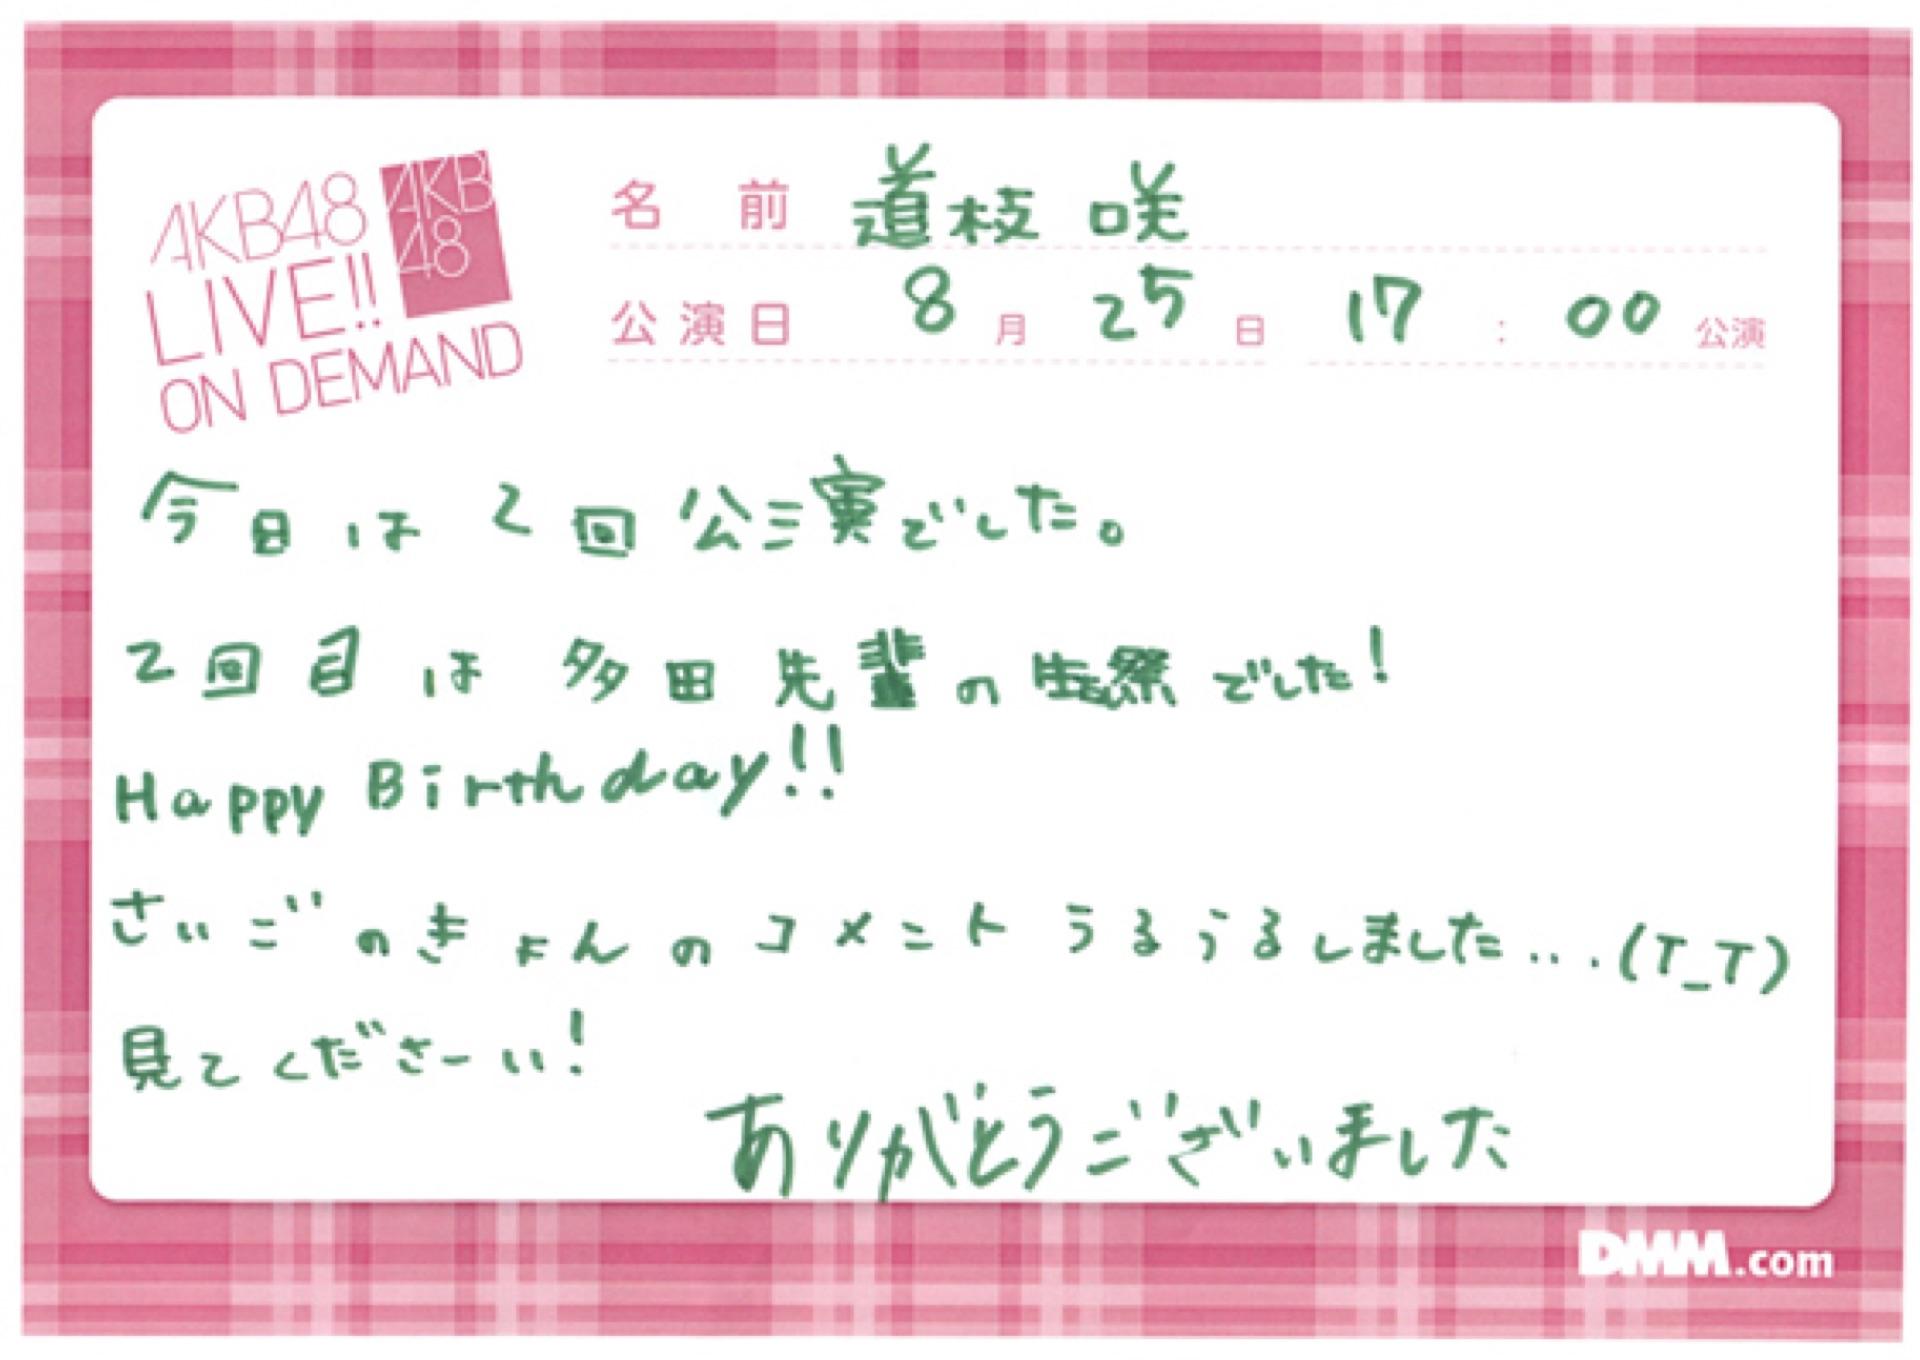 AKB48
LIVE!!
ON DEMAND
AKB
48
名前 道枝 咲
公演日 8月25日 17:00公演
今日は2回公演でした。
2回目は多田先輩の生誕祭でした!
Happy Birthday!!
さいごのきょんのコメントうるうるしました...(T_T)
見てくださーい!
ありがとうございました
DMM.com